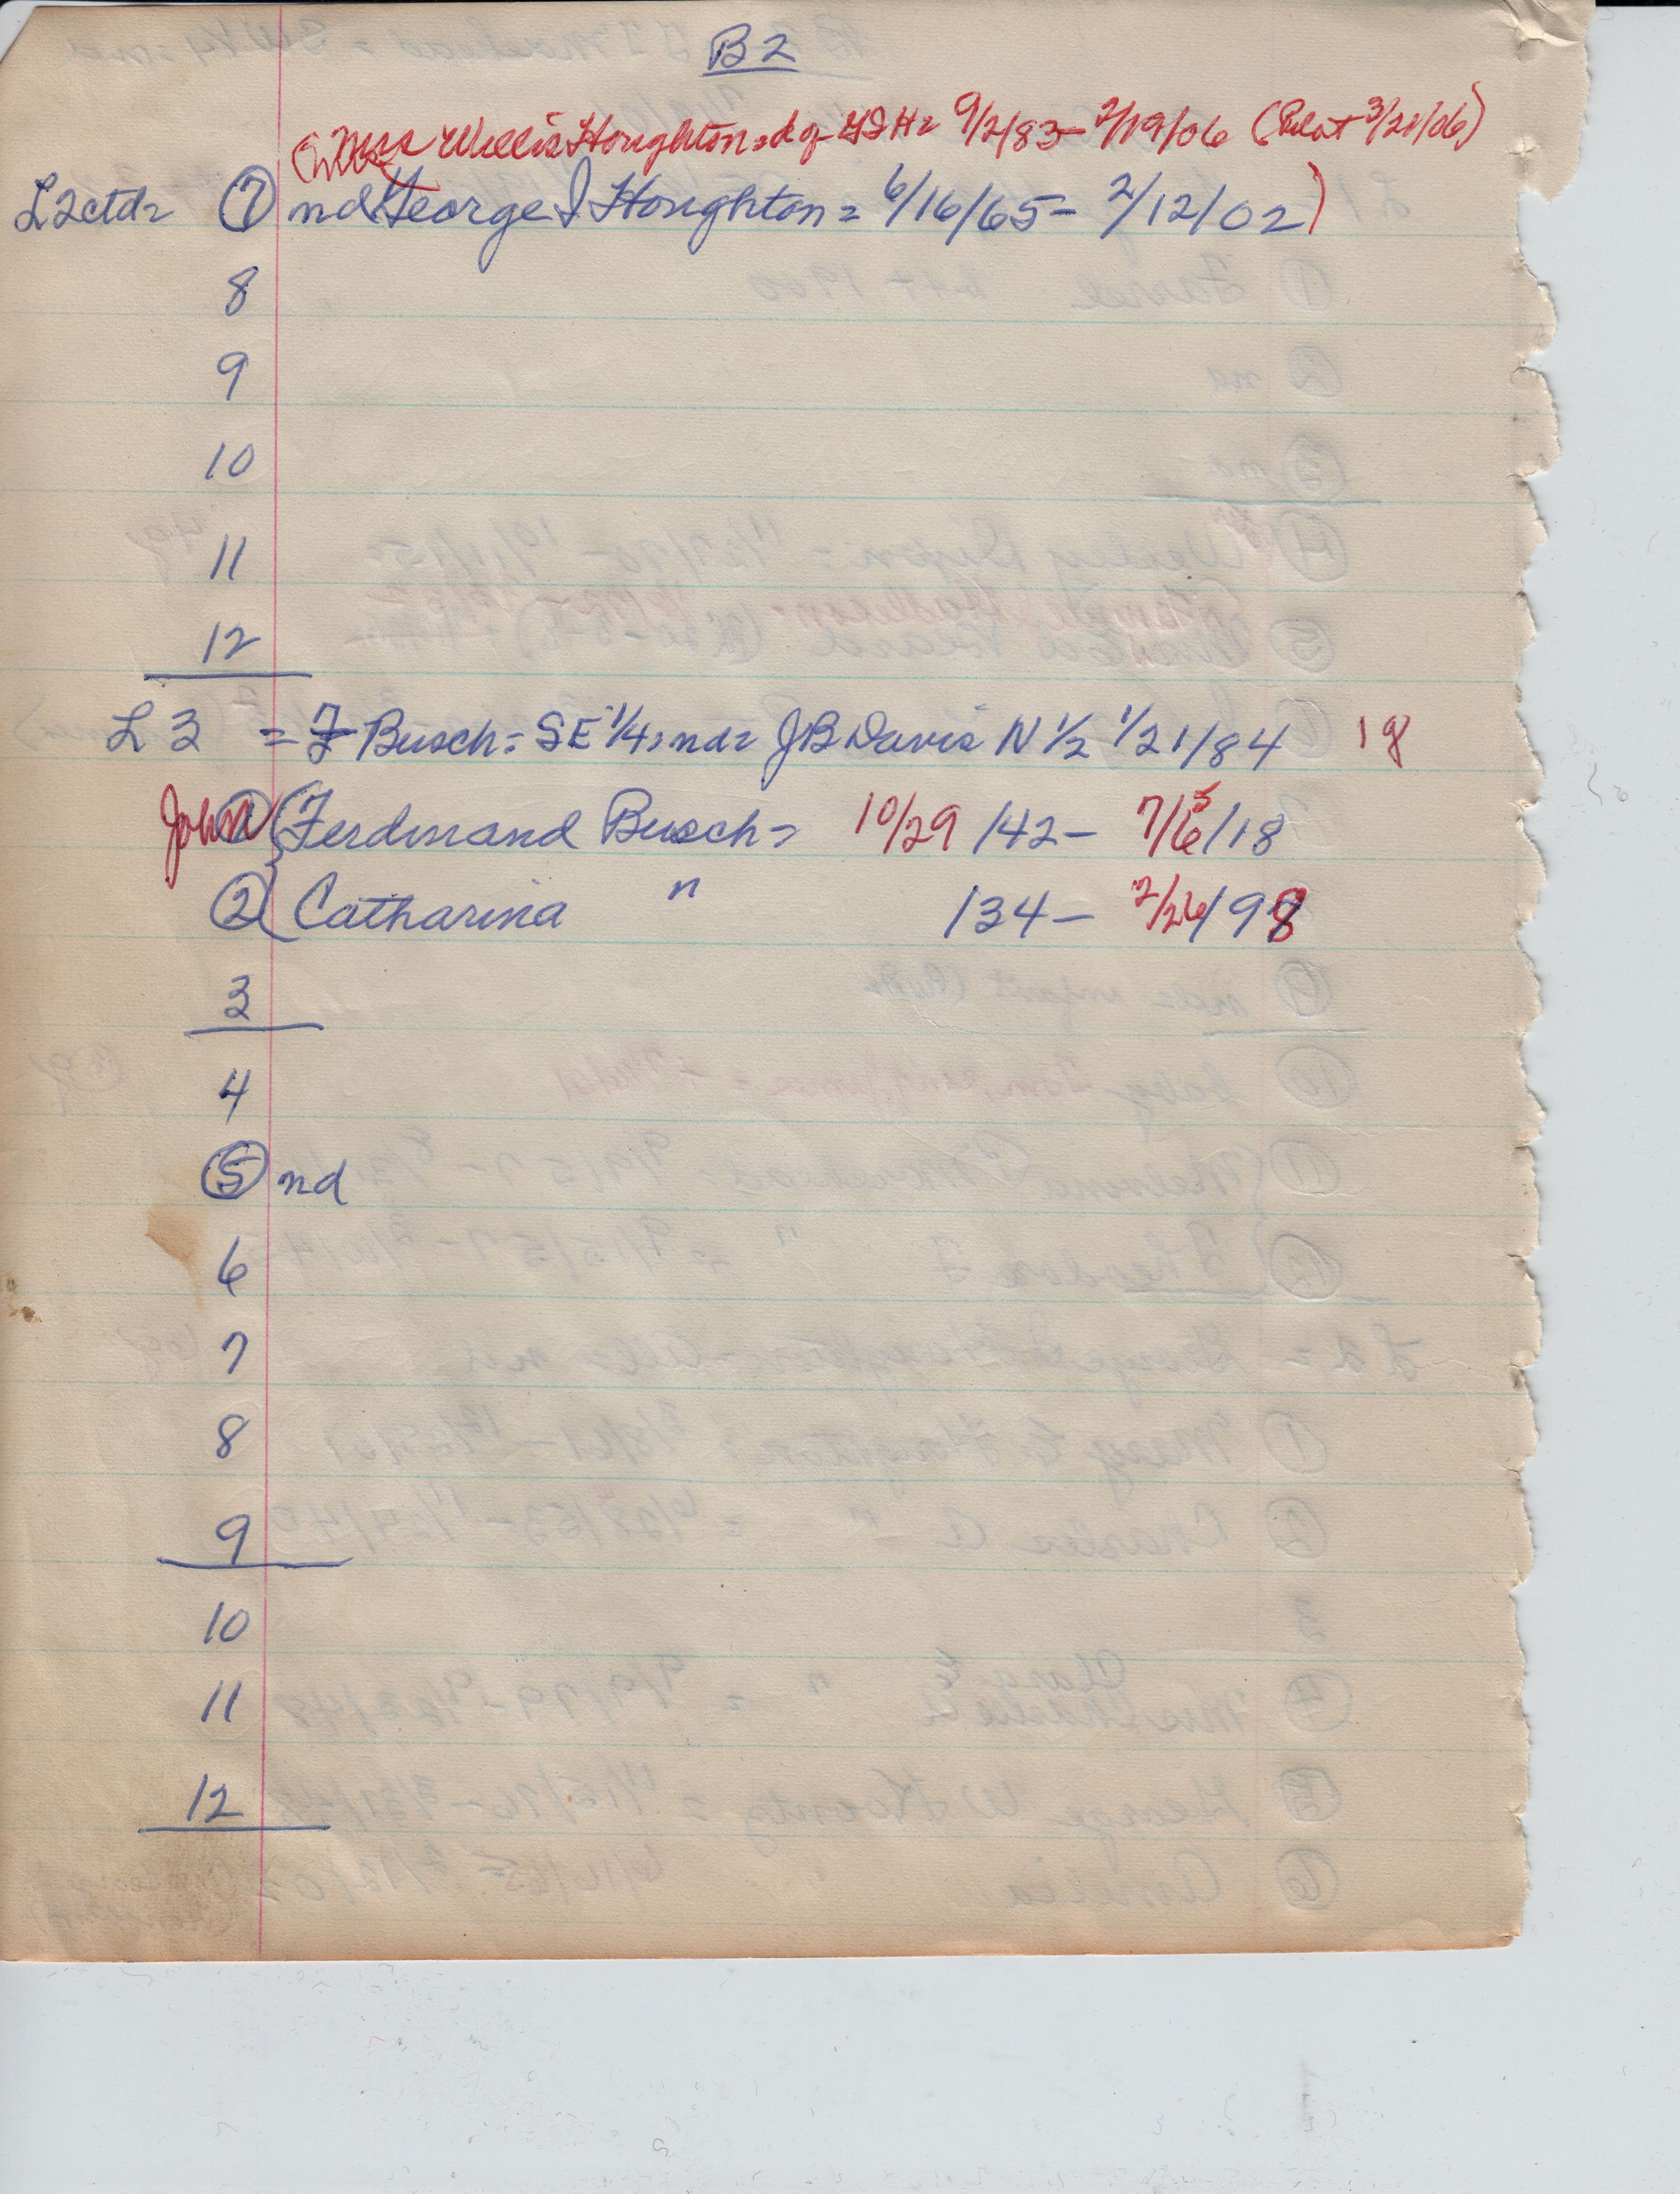 B2
(Miss Willis Houghton = d of GIH = 9/2/83 - 2/19/06 (Pd lot 3/21/06)
L2ctd = 7 nd George I Houghton = 6/16/65 - 2/12/02)
8
9
10
11
12
L 3 = F Busch = SE 1/4, nd = JB Davis N 1/2 1/21/84 1g
John 1 Ferdinand Busch = 10/29/42 - 7/5/18
2 Catharina " /34 - 2/26/98
3
4
5 nd
6
7
8
9
10
11
12